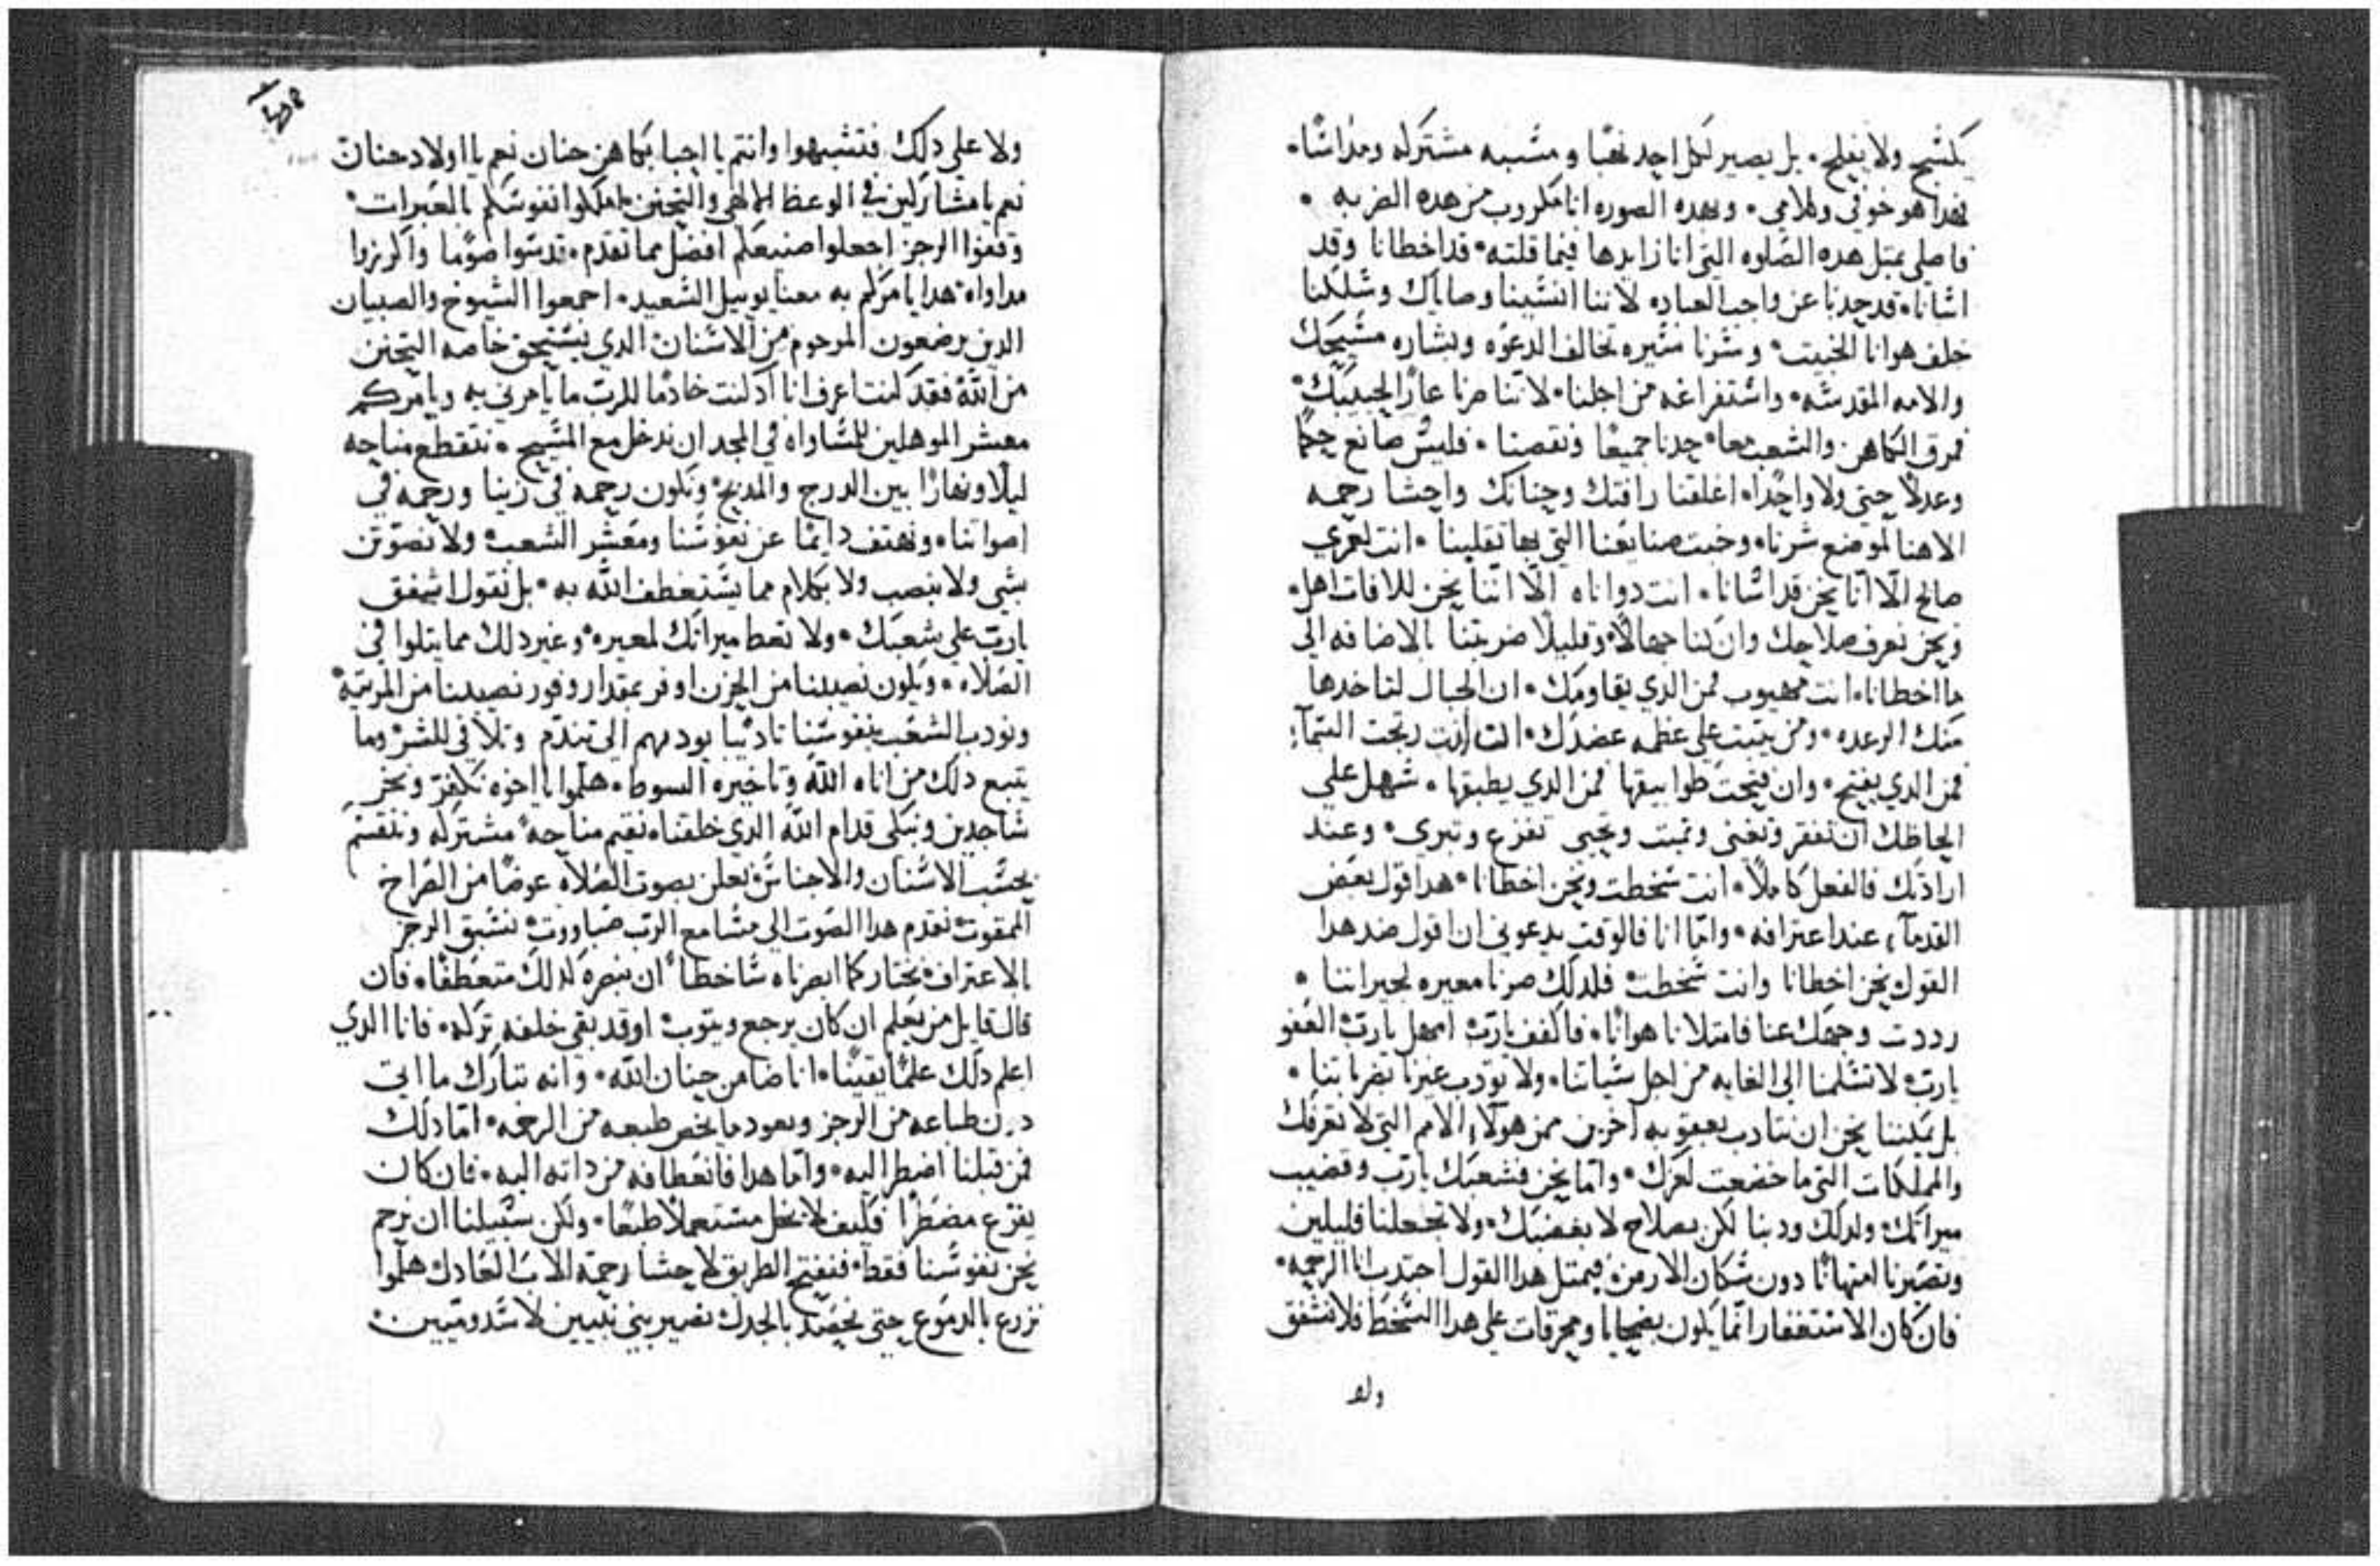 يكشح ولا يفلح. بل يصير لكل احد نهبًا و مشبه مشتركه ومداسًا.
فهدا هو خوفي وكلامي. وبهده الصوره انا مكروب من هده الضربه.
فاصلي بمثل هده الصلوه التي انا زايدها فيما قلته. قد اخطانا وقد
اسانا. قد حدنا عن واجب العباده لاننا انسينا وصاياك وسلكنا
خلف هوانا الخبيث. وسرنا سيره تخالف الدعوه وبشاره مسيحك
والامه المقدسه. واستفراغه من اجلنا. لاننا صرنا عارًا لحبيبك.
فمرق الكاهن والشعب معا. حدنا جميعًا ونقصنا. فليس صانع حكمًا
وعدلًا حتى ولا واحدًا. اغلقنا رافتك وحنانك واحشا رحمه
الاهنا لموضع شرنا. وخبث صنايعنا التي بها تقلبنا. انت لعمري
صالح الا انا نحن قد اسانا. انت دو اناه الا اننا نحن للافات اهل.
ونحن نعرف صلاحك وان كنا جهالًا. وقليلًا ضربتنا بالاضافه الى
ما اخطانا. انت مهيوب فمن الدي يقاومك. ان الجبال لتاخدها
منك الرعده. ومن يثبت على عظمه عضدك. انت ان رتجت السمآء
فمن الدي يفتح. وان فتحت طوابيقها فمن الدي يطبقها. سهل على
الحاظك ان تفقر وتغني وتميت وتحيي تفزع وتبري. وعند
ارادتك فالفعل كاملًا. انت سخطت ونحن اخطانا. هدا قول بعض
القدمآء عند اعترافه. وامّا انا فالوقت يدعوني ان اقول ضد هدا
القول نحن اخطانا وانت سخطت. فلدلك صرنا معيره لجيراننا.
رددت وجهك عنا فامتلانا هوانًا. فاكفف يارب امهل يارب العفو
يارب لا تسلمنا الى الغايه من اجل سياتنا. ولا تودب غيرنا بضرباتنا.
بل يمكننا نحن ان نتادب بعقوبه اخرين ممن هولاء الامم التي لا تعرفك
والمملكات التي ما خضعت لعزك. وامّا نحن فشعبك يارب وقضيب
ميراتك. ولدلك ودبنا لكن بصلاح لا بغضبك. ولا تجعلنا قليلين
وتصيرنا امتهانًا دون سكان الارض. فبمتل هدا القول اجتدب انا الرحمه.
فان كان الاستغفار انما يكون بضحايا ومحرقات على هدا السخط فلا تشفق
ولا
ولا على دلك. فتشبهوا وانتم يا احبا بكاهن حنان نعم يا اولاد حنان
نعم يا مشاركين في الوعظ الالاهي والتحنن. املكوا نفوسكم بالعبرات.
وقفوا الرجز اجعلوا صنيعكم افضل مما تقدم. قدسوا صومًا واكرزوا
مداواه. هدا يامركم به معنا يوييل السعيد. اجمعوا الشيوخ والصبيان
الدين يرضعون المرحوم من الاسنان الدي يستحق خاصه التحنن
من الله فقد كنت اعرف انا اد كنت خادمًا للرب ما يامرني به ويامركم
معشر الموهلين للمساواه في المجد ان ندخل مع المسيح. نتقطع مناحه
ليلًا ونهارًا بين الدرج والمدبح. وتكون رحمه في زينا ورحمه في
اصواتنا. ونهتف دايمًا عن نفوسنا ومعشر الشعب. ولا نضوتن
بشي ولا بنصب ولا بكلام مما يستعطف الله به. بل نقول اشفق
يارب على شعبك. ولا تعط ميراتك لمعيره. وغير دلك مما يتلوا في
الصلاه. ويكون نصيبنا من الحزن اوفر بمقدار وفور نصيبنا من المرتبه.
ونودب الشعب بنفوسنا تاديبًا يوديهم الى تندم وتلافي للشر وما
يتبع دلك من اناه الله وتاخيره السوط. هلموا يا اخوه نكفر ونخر
ساجدين ونبكي قدام الله الدي خلقنا. نقيم مناحه مشتركه وننقسم
بحسب الاسنان والاجناس. نعلن بصوت الصلاه عوضًا من الصراخ
الممقوت. نقدم هدا الصوت الى مسامع الرب صباووت. نسبق الرجز
بالاعتراف. نختار كما ابصرناه ساخطًا ان نبصره كدلك متعطفًا. فان
قال قايل من يعلم ان كان يرجع ويتوب. او قد يبقي خلفه بركه. فانا الدي
اعلم دلك علمًا يقينًا. انا ضامن حنان الله. وانه تبارك ما ابي
دون طباعه من الرجز ويعود بما يخص طبعه من الرحمه. امّا دلك
فمن قبلنا اضطر اليه. وامّا هدا فانعطافه من داته اليه. فان كان
يفزع مضطرًا فكيف لا يخل مستعملًا طبعًا. ولكن سبيلنا ان نرحم
نحن نفوسنا فقط. فنفتح الطريق لاحشا رحمة الاب العادل. هلموا
نزرع بالدموع حتى نحصد بالجدل. نصير بني نينيين لا سدوميين.